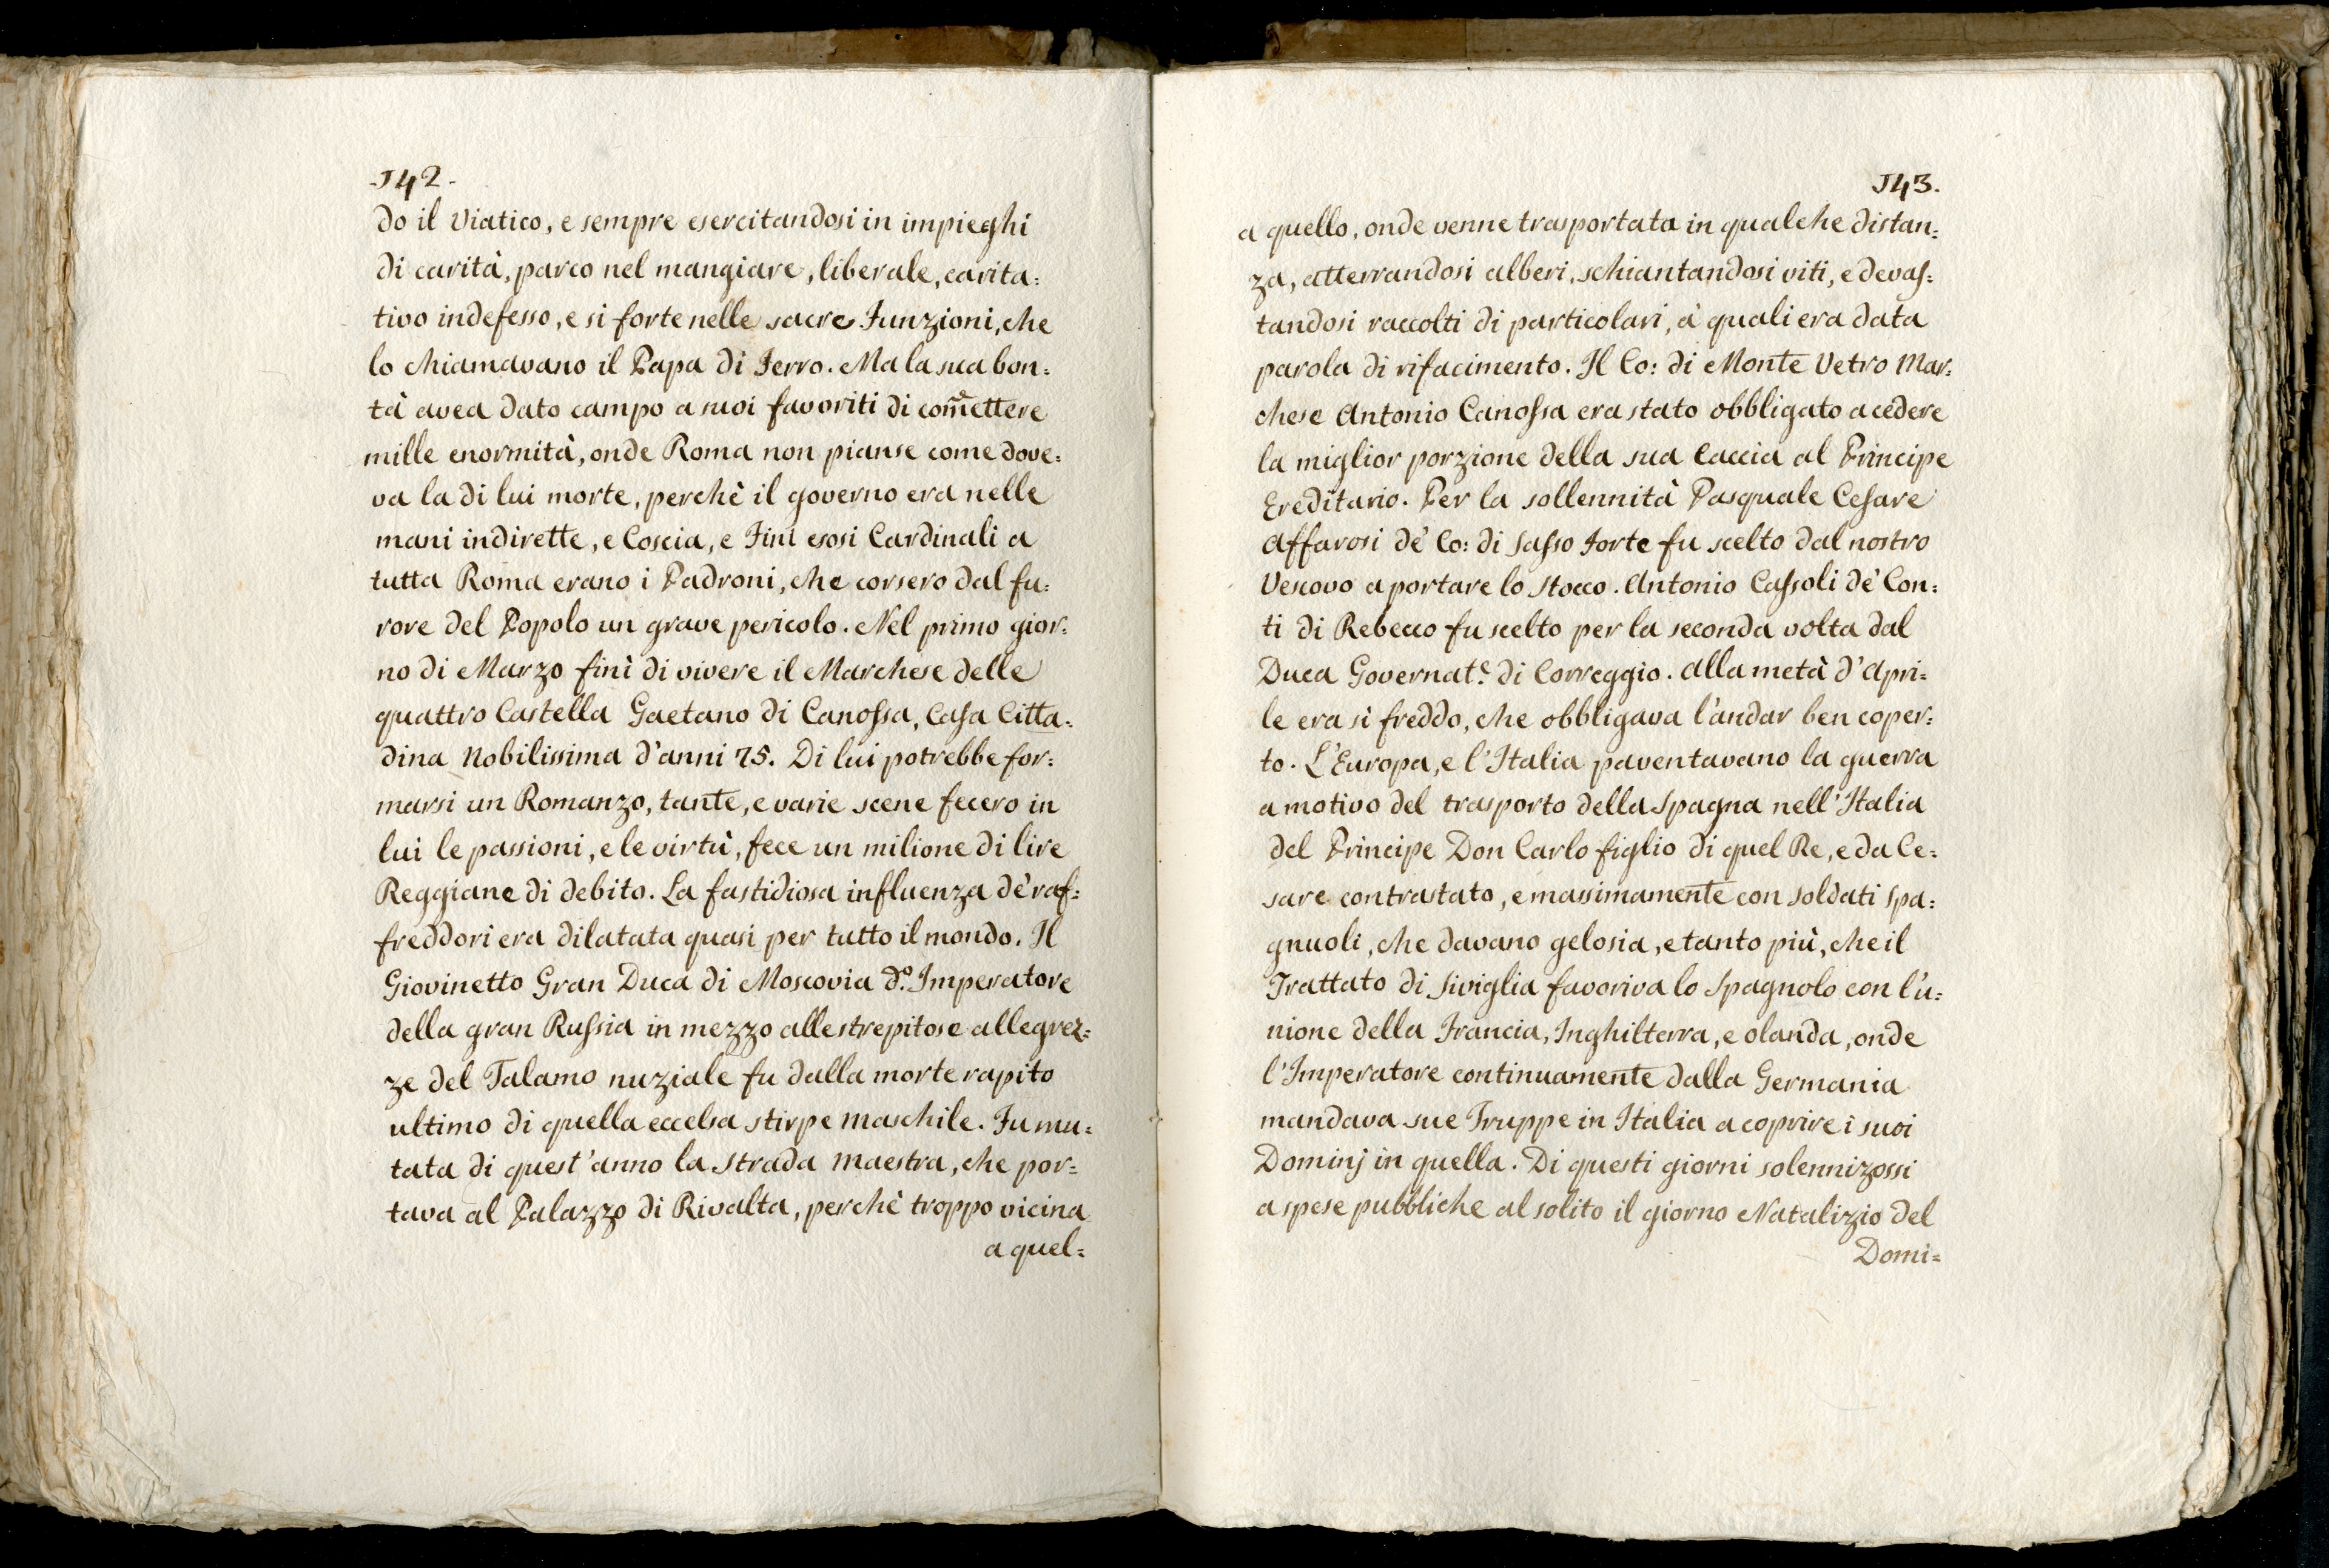 142.
do il Viatico, e sempre esercitandosi in impieghi
di carità, parco nel mangiare, liberale, carita=
tivo indefesso, e si forte nelle sacre Funzioni, che
lo chiamavano il Papa di Ferro. Ma la sua bon=
tà avea dato campo a suoi favoriti di com̄ettere
mille enormità, onde Roma non pianse come dove=
va la di lui morte, perchè il governo era nelle
mani indirette, e Coscia, e Fini esosi Cardinali a
tutta Roma erano i Padroni, che corsero dal fu=
rore del Popolo un grave pericolo. Nel primo gior=
no di Marzo finì di vivere il Marchese delle
quattro Castella Gaetano di Canossa, Casa Citta=
dina Nobilissima d'anni 75. Di lui potrebbe for=
marsi un Romanzo, tante, e varie scene fecero in
lui le passioni, e le virtù, fece un milione di lire
Reggiane di debito. La fastidiosa influenza dè raf=
freddori era dilatata quasi per tutto il mondo. Il
Giovinetto Gran Duca di Moscovia d.º Imperatore
della gran Russia in mezzo alle strepitose allegrez=
ze del Talamo nuziale fu dalla morte rapito
ultimo di quella eccelsa stirpe maschile. Fu mu=
tata di quest'anno la strada maestra, che por=
tava al Palazzo di Rivalta, perchè troppo vicina
a quel=
143.
a quello, onde venne trasportata in qualche distan=
za, atterrandosi alberi, schiantandosi viti, e devas=
tandosi raccolti di particolari, à quali era data
parola di rifacimento. Il Co: di Monte Vetro Mar=
chese Antonio Canossa era stato obbligato a cedere
la miglior porzione della sua Caccia al Principe
Ereditario. Per la sollennità Pasquale Cesare
Affarosi dè Co: di Sasso Forte fu scelto dal nostro
Vescovo a portare lo stocco. Antonio Cassoli dè Con=
ti di Rebecco fu scelto per la seconda volta dal
Duca Governat.e di Correggio. Alla metà d'Apri=
le era sì freddo, che obbligava l'andar ben coper=
to. L'Europa, e l'Italia paventavano la guerra
a motivo del trasporto della Spagna nell'Italia
del Principe Don Carlo figlio di quel Re, e da Ce=
sare contrastato, e massimamente con soldati Spa=
gnuoli, che davano gelosia, e tanto più, che il
Trattato di Siviglia favoriva lo Spagnolo con l'u=
nione della Francia, Inghilterra, e olanda, onde
l'Imperatore continuamente dalla Germania
mandava sue Truppe in Italia a coprire i suoi
Dominj in quella. Di questi giorni solennizossi
a spese pubbliche al solito il giorno Natalizio del
Domi=